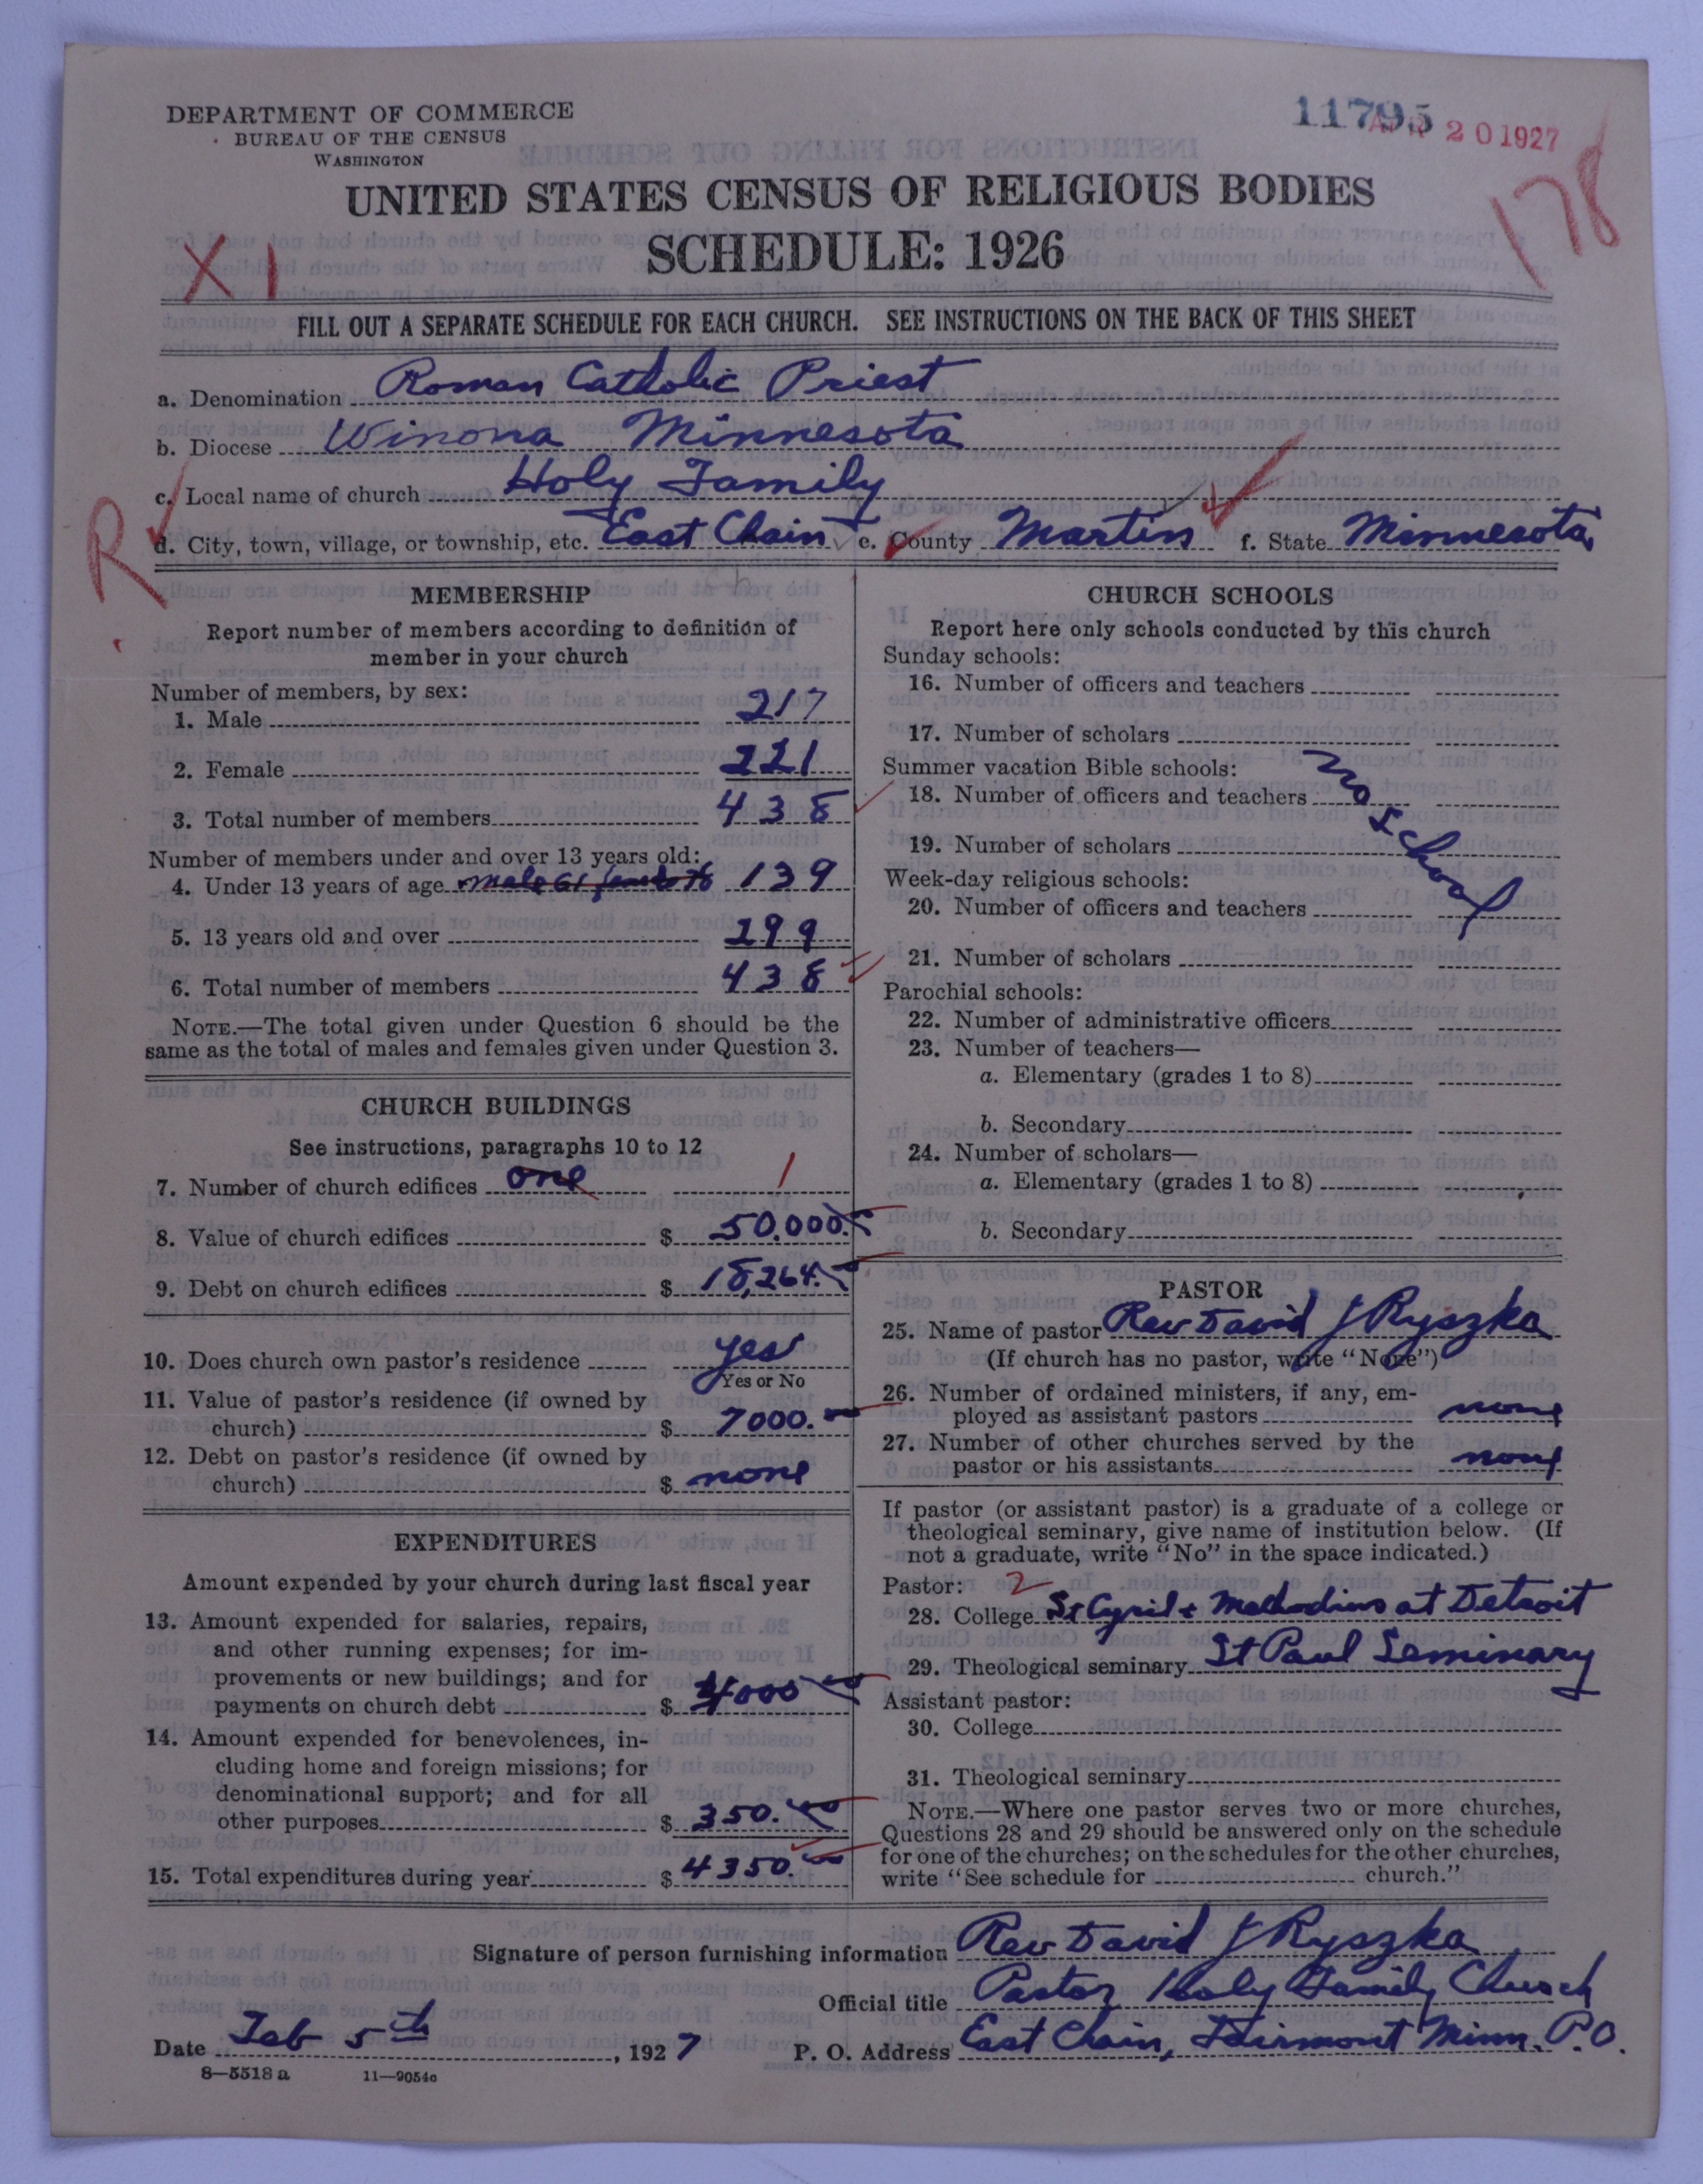 DEPARTMENT OF COMMERCE
BUREAU OF THE CENSUS
WASHINGTON
11795
20 1927
178
UNITED STATES CENSUS OF RELIGIOUS BODIES
SCHEDULE: 1926
X 1
FILL OUT A SEPARATE SCHEDULE FOR EACH CHURCH. SEE INSTRUCTIONS ON THE BACK OF THIS SHEET
a. Denomination Roman Catholic Priest
b. Diocese Winona Minnesota
c. Local name of church Holy Family
R
d. City, town, village, or township, etc. East Chain e. County Martin f. State Minnesota
MEMBERSHIP
Report number of members according to definition of
member in your church
Number of members, by sex:
1. Male 217
2. Female 221
3. Total number of members 438
Number of members under and over 13 years old:
4. Under 13 years of age male 61 female 78 139
5. 13 years old and over 299
6. Total number of members 438
NOTE.—The total given under Question 6 should be the
same as the total of males and females given under Question 3.
CHURCH BUILDINGS
See instructions, paragraphs 10 to 12
7. Number of church edifices one 1
8. Value of church edifices $ 50.000.
9. Debt on church edifices $ 18,264.
10. Does church own pastor's residence yes
Yes or No
11. Value of pastor's residence (if owned by
church) $ 7000.
12. Debt on pastor's residence (if owned by
church) $ none
EXPENDITURES
Amount expended by your church during last fiscal year
13. Amount expended for salaries, repairs,
and other running expenses; for im-
provements or new buildings; and for
payments on church debt $ 4000
14. Amount expended for benevolences, in-
cluding home and foreign missions; for
denominational support; and for all
other purposes $ 350.
15. Total expenditures during year $ 4350.
CHURCH SCHOOLS
Report here only schools conducted by this church
Sunday schools:
16. Number of officers and teachers
17. Number of scholars
Summer vacation Bible schools:
no school
18. Number of officers and teachers
19. Number of scholars
Week-day religious schools:
20. Number of officers and teachers
21. Number of scholars
Parochial schools:
22. Number of administrative officers
23. Number of teachers—
a. Elementary (grades 1 to 8)
b. Secondary
24. Number of scholars—
a. Elementary (grades 1 to 8)
b. Secondary
PASTOR
25. Name of pastor Rev David J Ryszka
(If church has no pastor, write "None")
26. Number of ordained ministers, if any, em-
ployed as assistant pastors none
27. Number of other churches served by the
pastor or his assistants none
If pastor (or assistant pastor) is a graduate of a college or
theological seminary, give name of institution below. (If
not a graduate, write "No" in the space indicated.)
Pastor: 2
28. College St Cyril + Methodius at Detroit
29. Theological seminary St Paul Seminary
Assistant pastor:
30. College
31. Theological seminary
NOTE.—Where one pastor serves two or more churches,
Questions 28 and 29 should be answered only on the schedule
for one of the churches; on the schedules for the other churches,
write "See schedule for church."
Signature of person furnishing information Rev David J Ryszka
Official title Pastor Holy Family Church
Date Feb 5th, 1927 P. O. Address East Chain, Fairmont Minn. P.O.
8—5518 a 11—9054c